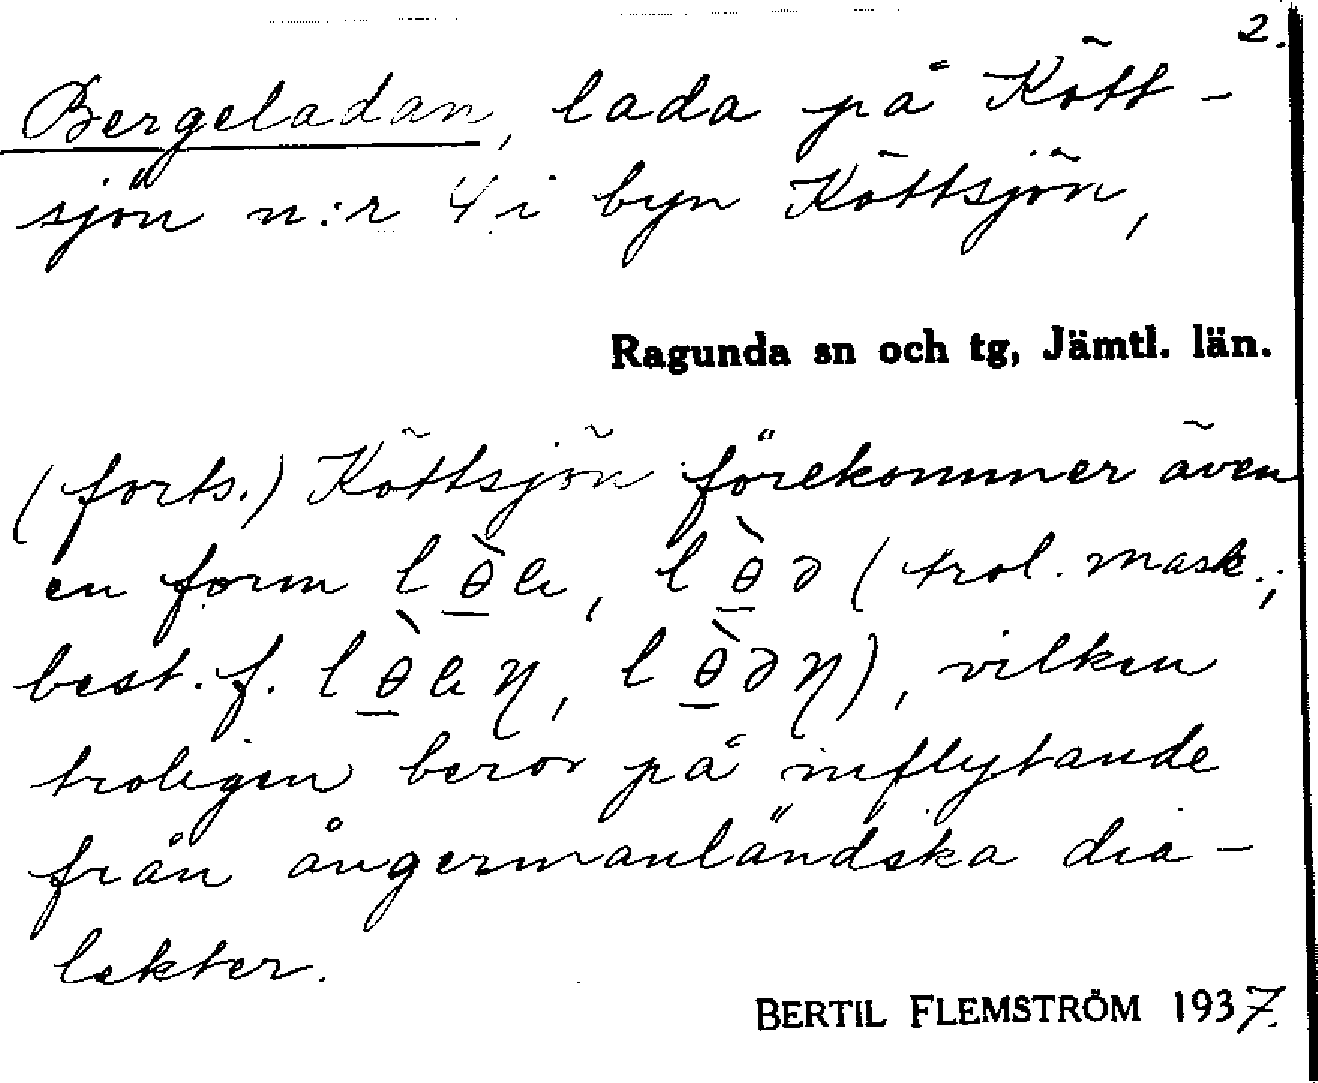 2.
Bergeladan, lada på Kött-
sjön n:r 4 i byn Köttsjön,
Ragunda sn och tg, Jämtl. län.
(forts.) Köttsjön förekommer även
en form l, l (trol. mask.;
best. f. l, l), vilken
troligen beror på inflytande
från ångermanländska dia-
lekter.
BERTIL FLEMSTRÖM 1937.